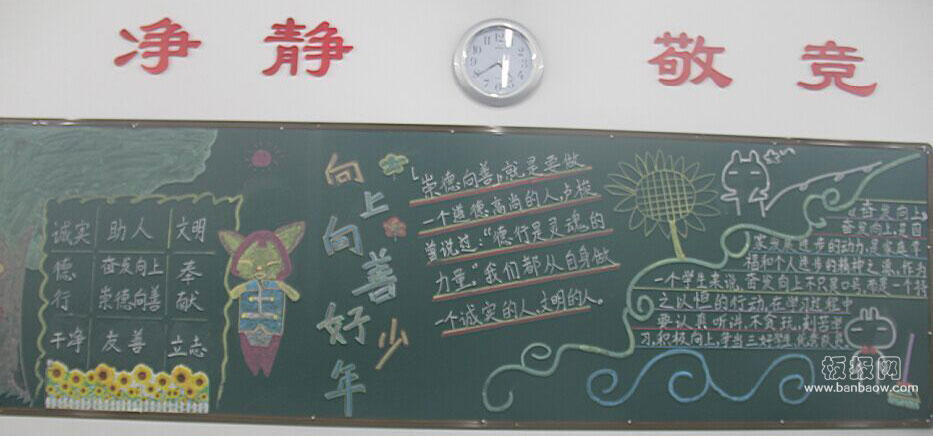 净 静 敬 竞
诚实 助人 文明
德行 奋发向上 崇德向善 奉献
干净 友善 立志
向上向善好少年
崇德向善,就是要做
一个道德高尚的人,卢梭
曾说过:“德行是灵魂的
力量。”我们都从自身做
一个诚实的人,文明的人。
《奋发向上》
奋发向上,是国
家发展进步的动力,是家庭幸
福和个人进步的精神之源,作为
一个学生来说,奋发向上不只是口号,而是一个持
之以恒的行动,在学习过程中
要认真听讲,不贪玩,刻苦学
习,积极向上,争当三好学生,优秀队员。
板报网
www.banbaow.com